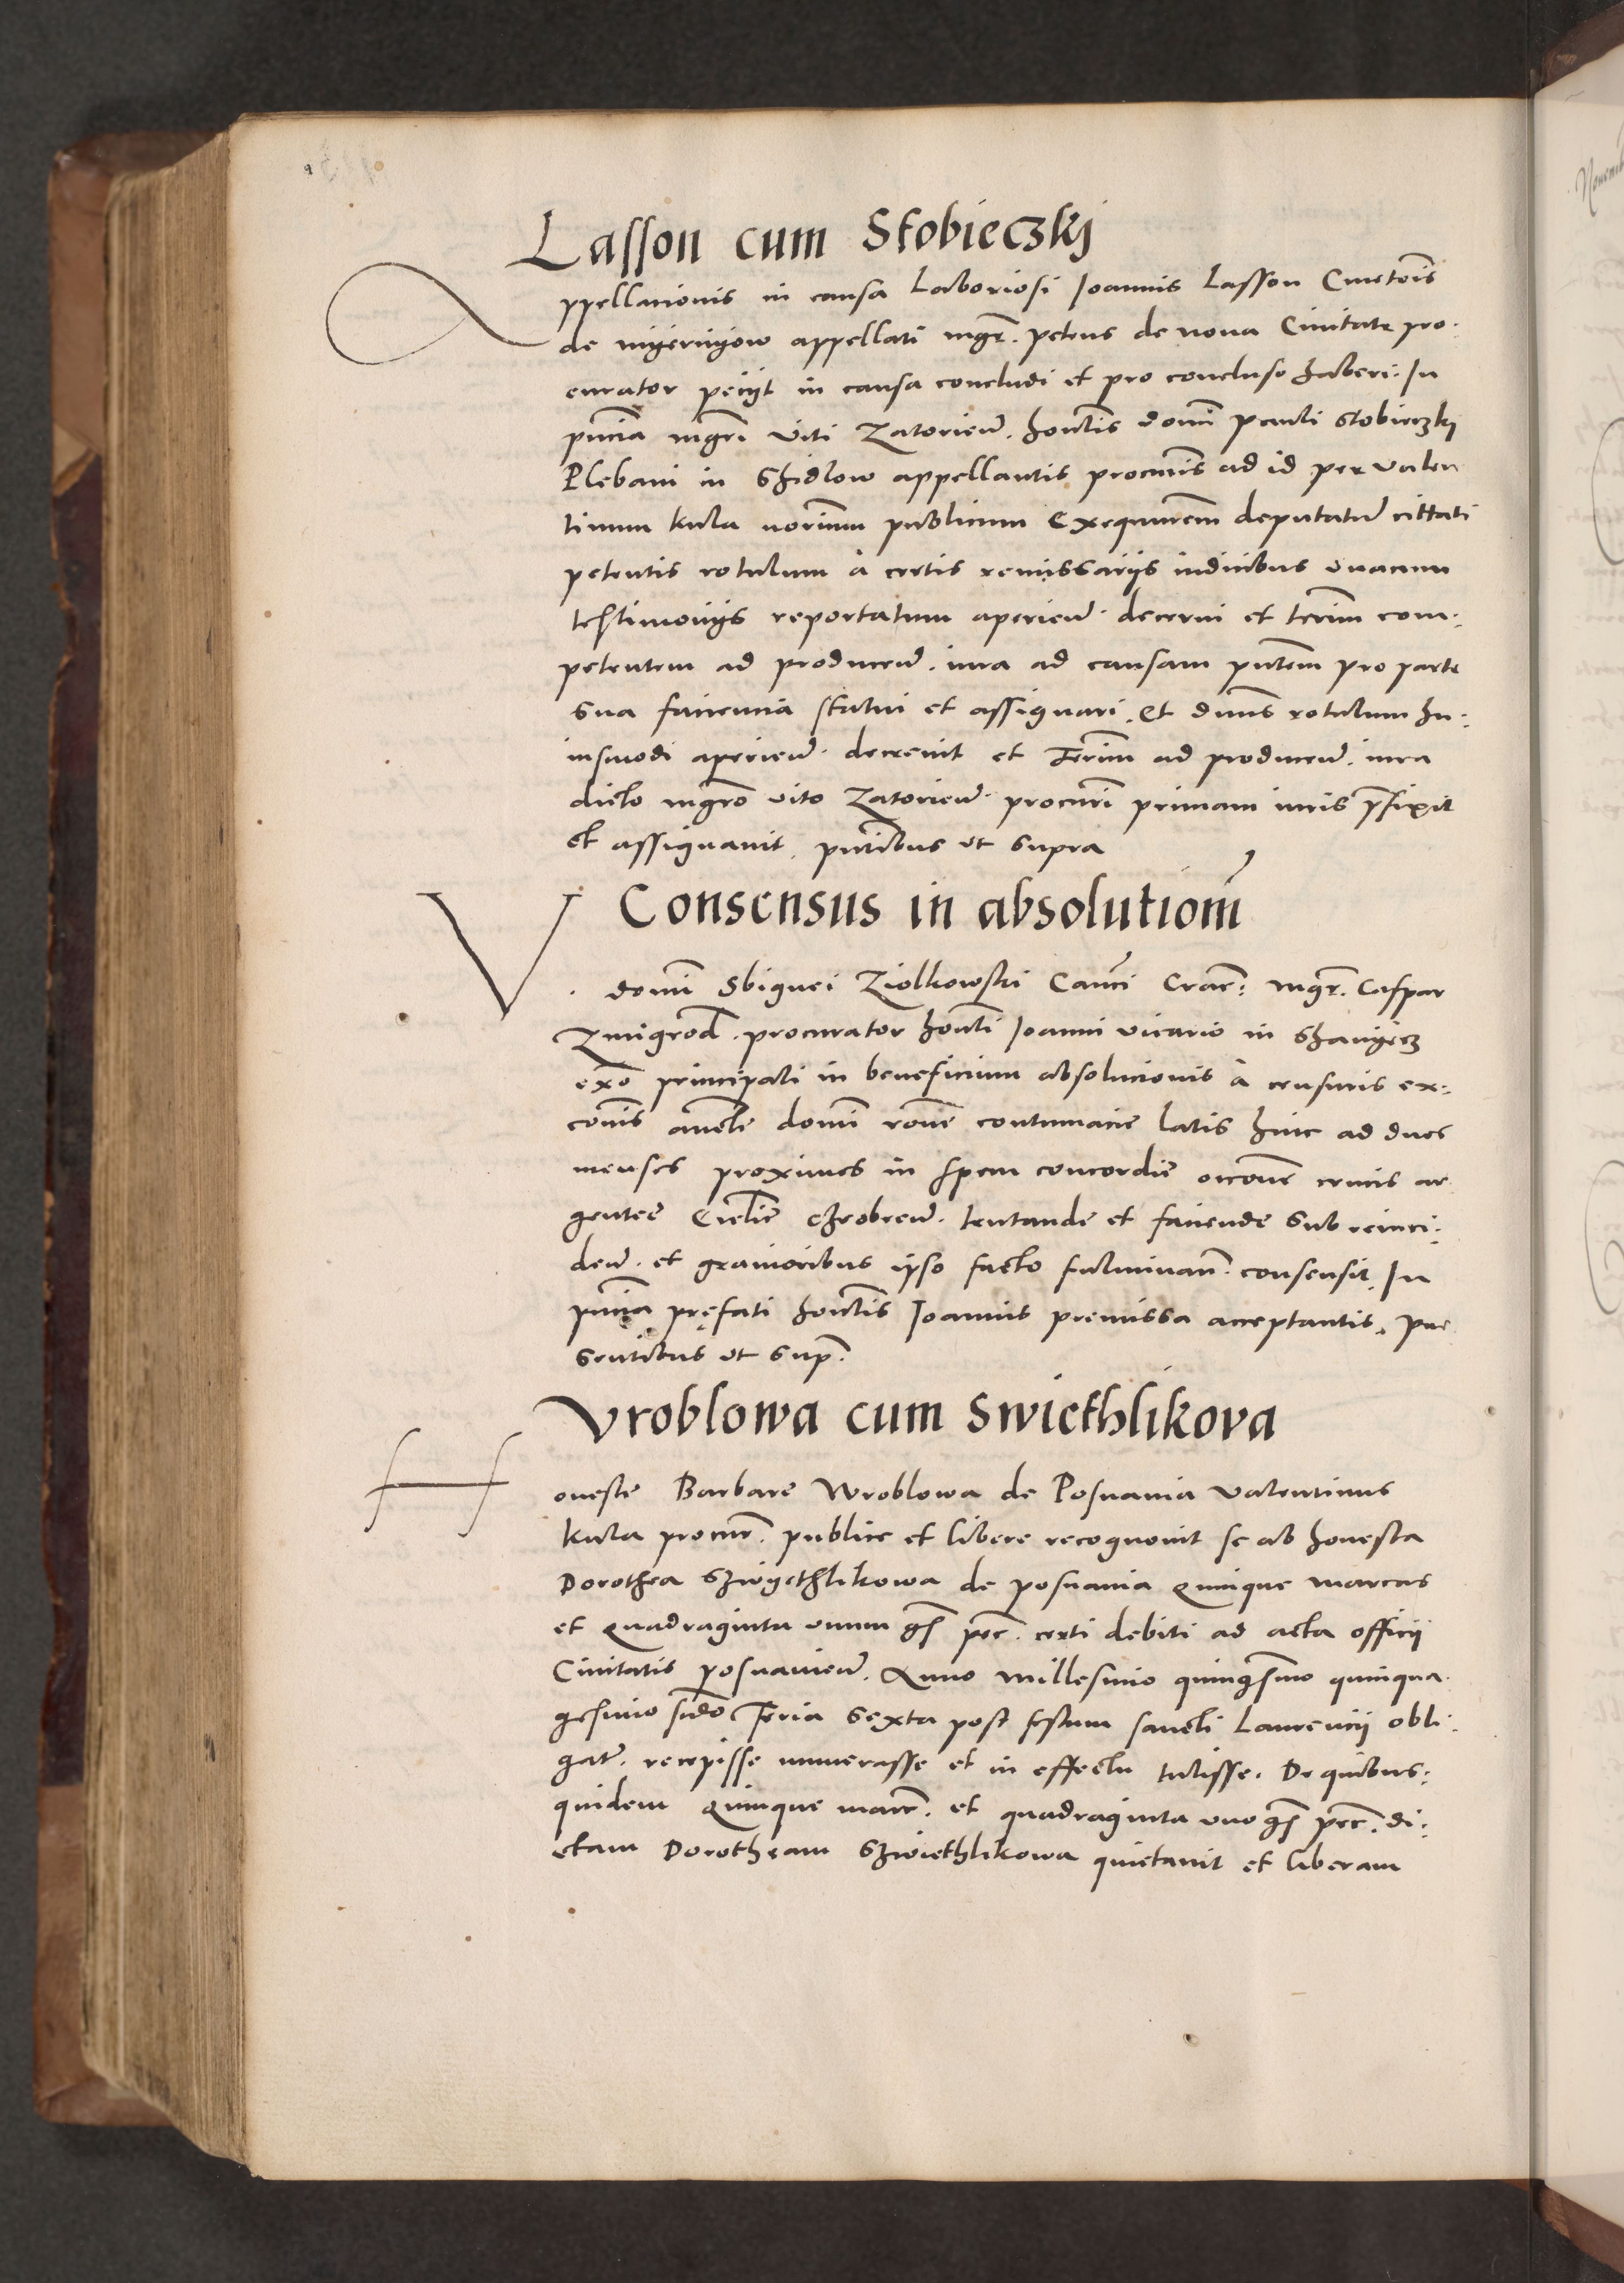 Lasson cum Stobieczkj
Appellationis in causa Laboriosi Joannis Lasson Cmetois
de mijernijow appellati mgr. petrus de nova Civitate pro
curator petijt in causa concludi et pro concluso haberi. In
pntia mgri Viti Zatorien. hontis domi pauli Stobieczkj
Plebani in Shidlow appellantis procuris ad id per valen
tinum kula norium publicum exequutrem deputatum cittati
petentis rotulum à certis remissarijs iudicibus unacum
testimonijs reportatum aperien. decerni et termi com.
petentem ad producen. iura ad causam pntem pro parte
sua facientia statui et assignari. Et dnus rotulum hu.
iusmodi aperien. decrevit et Termi ad producen. iura
dicto mgro vito Zatorien. procuri primam iuris prefixit
et assignavit. pntibus ut supra
Consensus in absolutiom
V. domi Sbignei Ziolkowski Canci Crac: mgr. Caspar
Zmigrod. procurator honti Joanni vicario in
exo principali in beneficium absolucionis à censuris ex.
cois auctte domi rone contumacie latis hinc ad duos
menses proximos in spem concordie occone crucis ar
gentee Ecclie chrobrien. tentande et faciende sub reinci.
den. et gravioribus ipso facto fulminan. consensit. In
pntia prefati hontis Joannis premissa acceptantis. pre
sentibus ut sup.
Vroblowa cum Swiethlikova
Honeste Barbare Wroblowa de Posnania Valentinus
kula procur. publice et libere recognovit se ab honesta
Dorothea Szwyethlikowa de posnania Quinque marcas
et Quadraginta unum gs pec. certi debiti ad acta officii
Civitatis posnanien. Anno millesimo quingsmo quinqua
gesimo sdo Feria Sexta post festum sancti Laurencii obli.
gat. recepisse numerasse et in effectu tulisse. De quibus.
quidem Quinque marc. et quadraginta uno gs pec. di.
ctam Dorotheam Szwiethlikowa quietavit et liberam